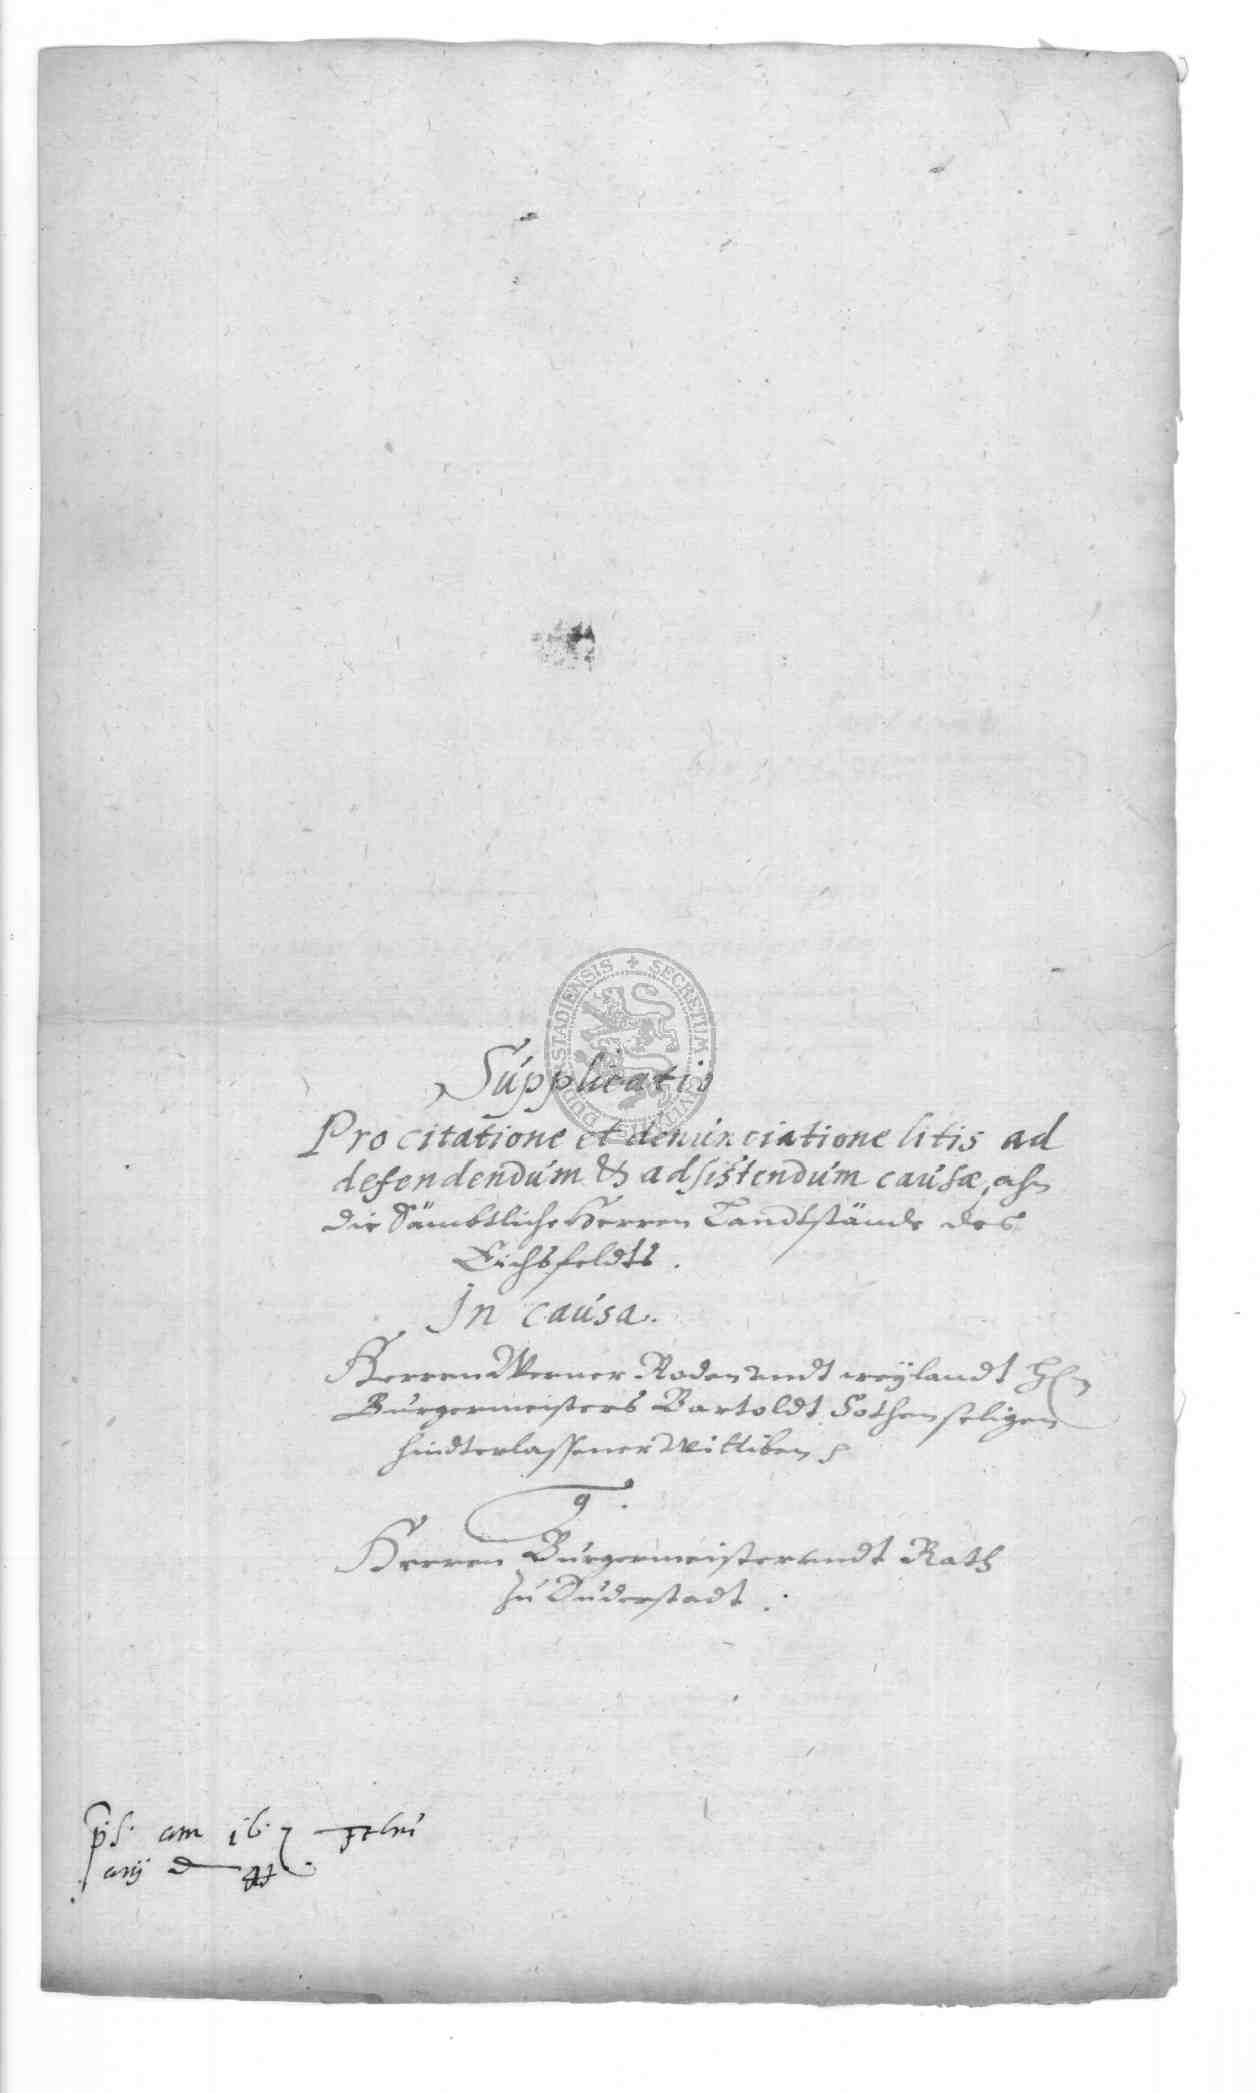 SECRETUM CIVITATIS DUDERSTADIENSIS
Supplicatio
Pro citatione et denunciatione litis ad
defendendum & adsistendum causæ, ahn
die Sämbtliche Herren Landtstände des
Eichsfeldts.
In causa.
Herren Werner Roden undt weylandt
Burgermeisters Bartoldt Sothen seligen
hindterlassener Wittiben
Herren Burgermeister undt Rath
zu Duderstadt.
ps. am 16. Febru
arij